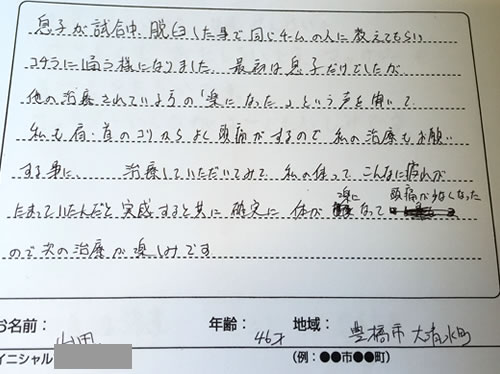 息子が試合中脱臼した事で同じチームの人に教えてもらい
コチラに通う様になりました 最初は息子だけでしたが
他の治療されている方の「楽になった」という声を聞いて
私も肩・首のコリからよく頭痛がするので 私の治療もお願い
する事に、 治療していただいてみて 私の体って こんなに疲れが
たまっていたんだと実感すると共に 確実に 体が 楽に なって 頭痛が少なくなった
ので次の治療が楽しみです
お名前: 年齢: 46才 地域: 豊橋市 大清水町
イニシャル (例:●●市●●町)